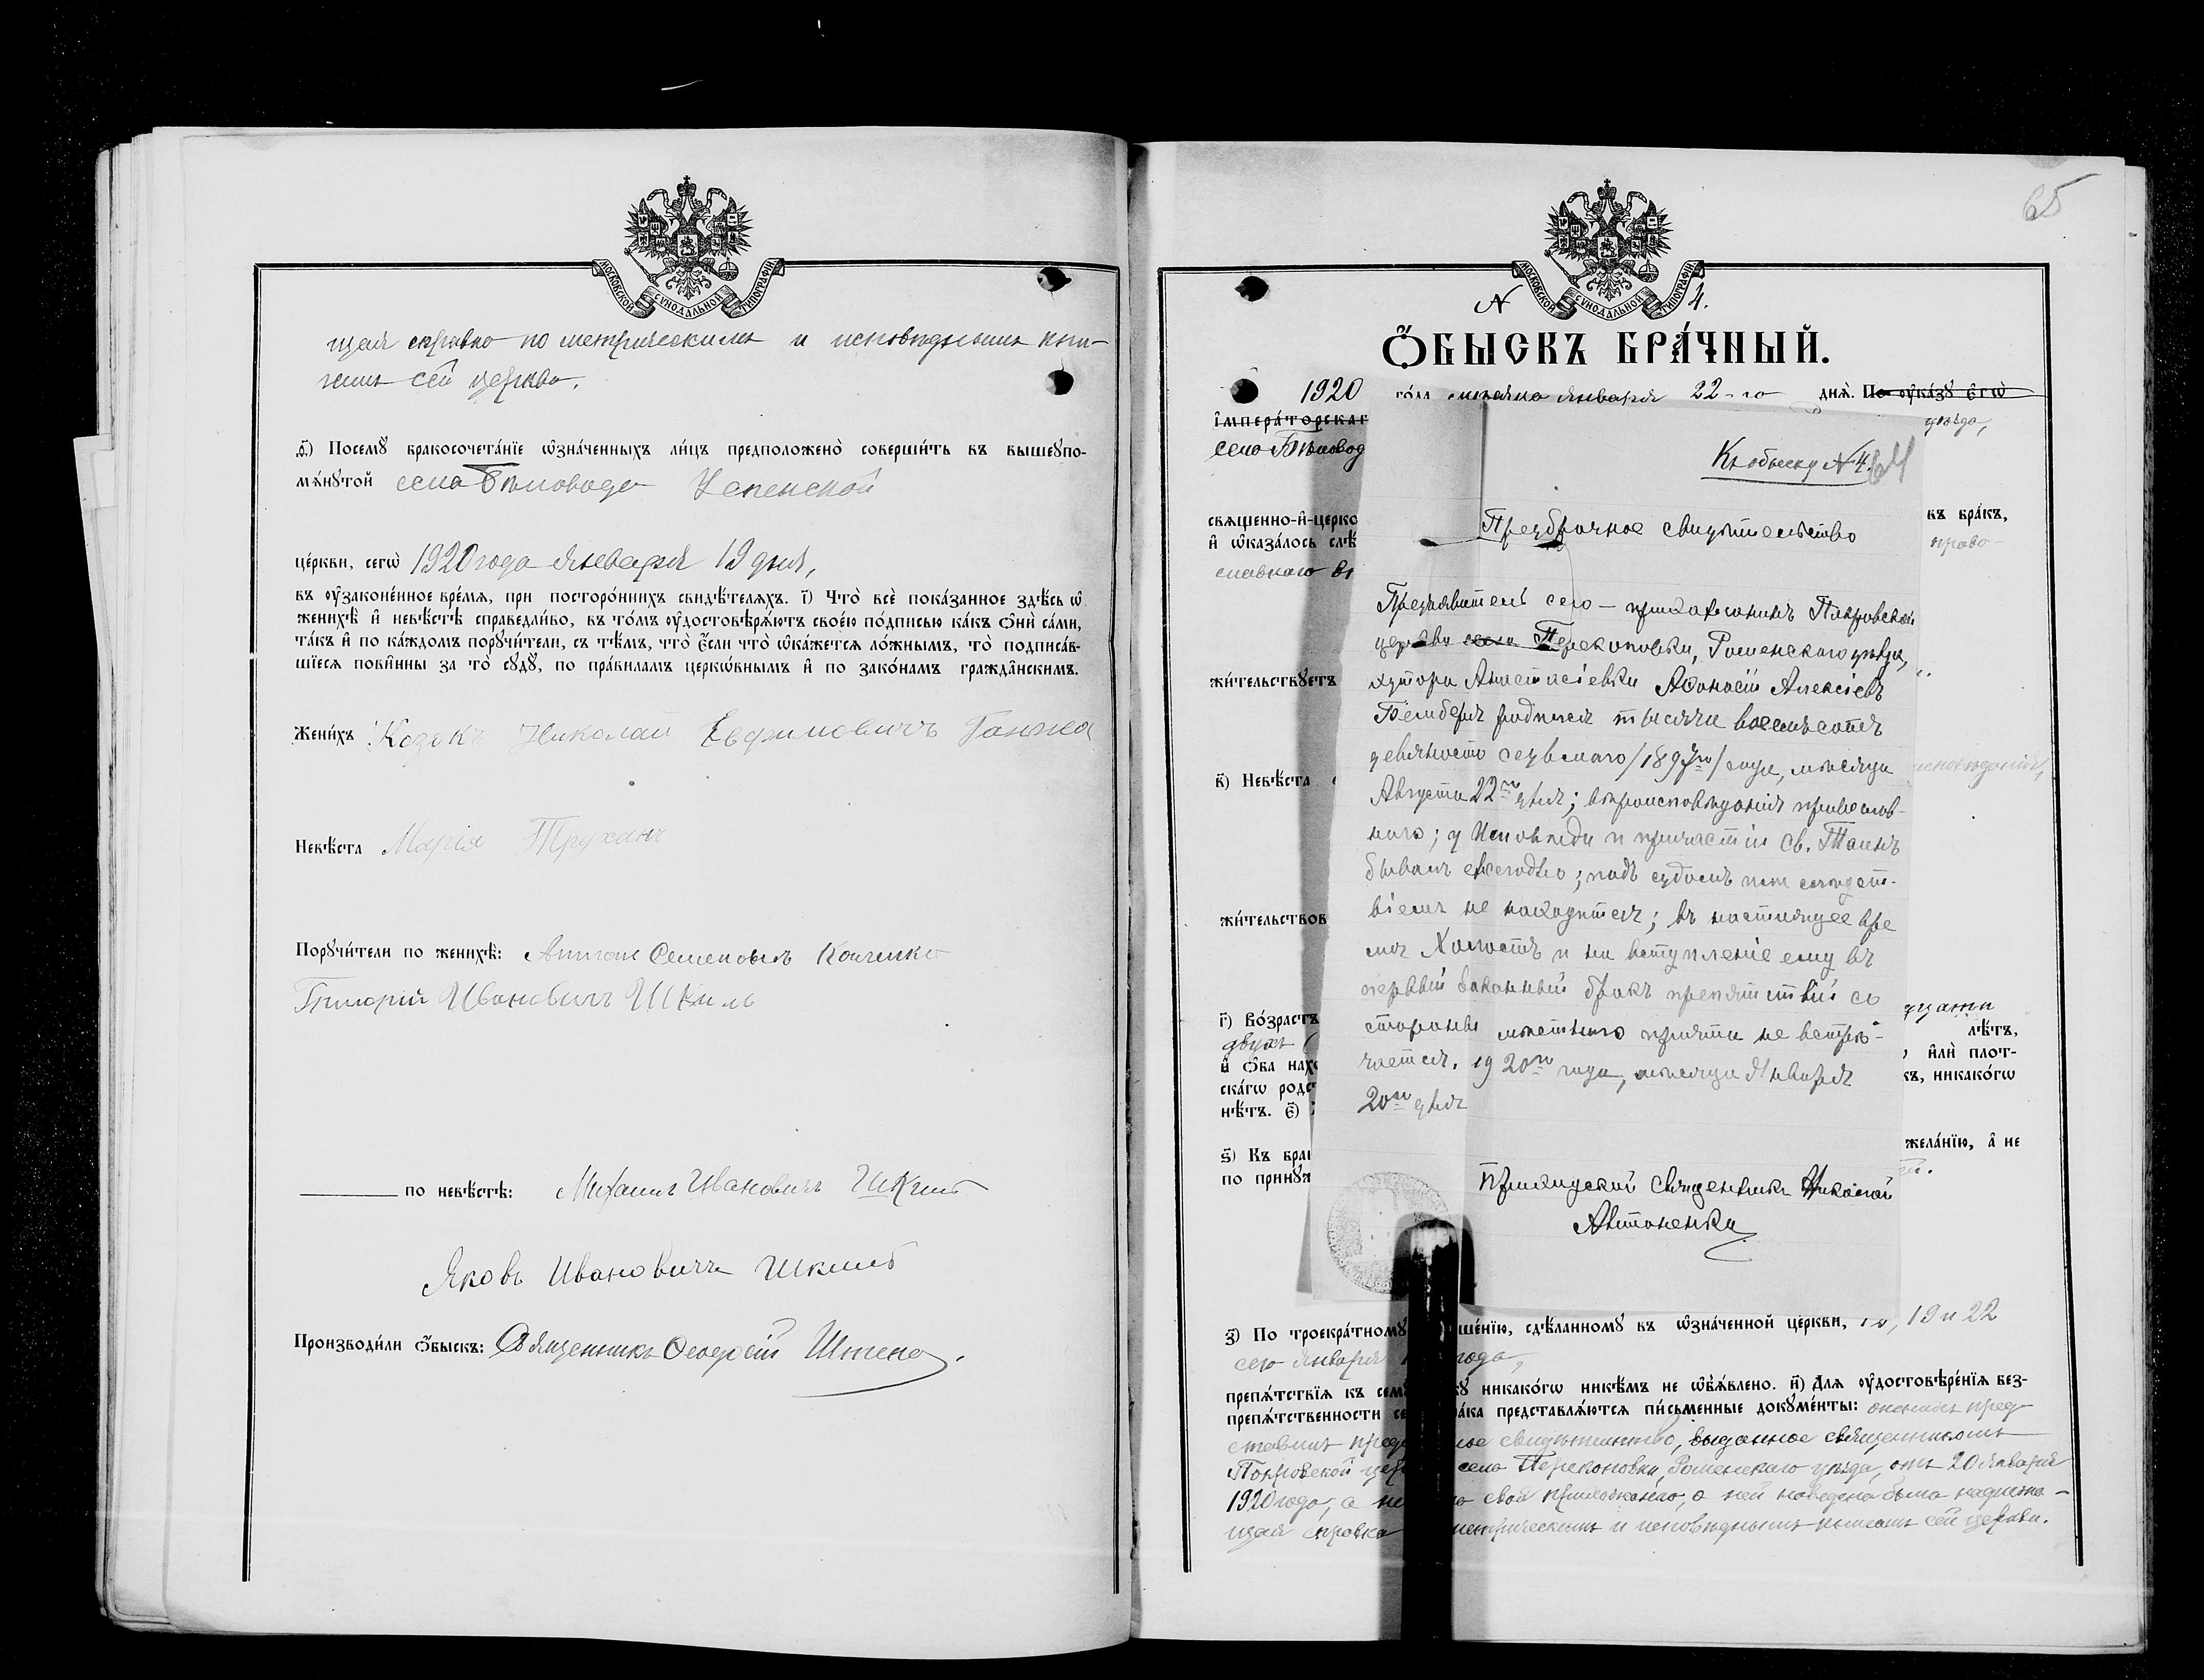 МОСКОВСКОЙ СѴНОДАЛЬНОЙ ТИПОГРАФІИ
щая справка по метрическимъ и исповѣднымъ кни-
гамъ сей церкви.
д҃і) Посемꙋ бракосочета́нїе ѡ҆зна́ченныхъ ли́цъ предположено̀ соверши́ть въ вышеꙋпо-
мѧ́нꙋтой села Бѣловода Успенской
це́ркви, сегѡ̀ 1920 года января 19 дня,
въ ѹ҆зако́ненное вре́мя, при посторо́ннихъ свидѣ́телѧхъ. і҃) Что̀ всѐ пока́занное здѣ́сь ѡ҆
женихѣ̀ и҆ невѣ́стѣ справедли́во, въ то́мъ ѹ҆достовѣрѧ́ютъ свое́ю по́дписью ка́къ ѻ҆нѝ са́ми,
та́къ и҆ по ка́ждомъ порꙋчи́тели, съ тѣ́мъ, что̀ є҆́сли что̀ ѡ҆ка́жется ло́жнымъ, то̀ подписа́в-
шїесѧ пови́нны за то̀ сꙋдꙋ̀, по пра́виламъ церко́внымъ и҆ по зако́намъ гражда̂нскимъ.
Жени́хъ Козакъ Николай Евфимовичъ Ганжа
Невѣ́ста Марія Труханъ
Порꙋчи́тели по женихѣ̀: Семеновичъ
Григорій Ивановичъ Шкиль
по невѣ́стѣ: Михаилъ Ивановичъ Шкиль
Яковъ Ивановичъ Шкиль
Производи́ли ѻ҆́быскъ: Священникъ Ѳеодосій
65
МОСКОВСКОЙ СѴНОДАЛЬНОЙ ТИПОГРАФІИ
N 4.
Ѻ҆́БЫСКЪ БРА́ЧНЫЙ.
1920 го́да мѣсяца января 22-го днѧ̀. По ѹ҆ка́зꙋ є҆гѡ̀
і҆мпера́торскаг уѣзда,
село Бѣловод
свѧщенно-и҆-церко въ бра́къ,
и҆ ѡ҆каза́лось слѣ̀ право-
славнаго в
жи́тельствꙋетъ
в҃) Невѣ́ста исповѣданія,
жи́тельствов
г҃) Во́зрастъ дцати
двухъ лѣ́тъ,
и҆ ѻ҆́ба нахо и҆лѝ плот-
ска́гѡ родс къ, никако́гѡ
нѣ́тъ. є҃)
ѕ҃) Къ бра жела́нїю, а҆ не
по принꙋ́ж
Къ обыску N 4. 64
Предбрачное свидѣтельство
Предъявитель сего — прихожанинъ Покровской
церкви села Перекоповки, Роменскаго уѣзда,
хутора Анастасіевки Аѳанасій Алексіевъ
родился тысяча восемьсотъ
девяносто седьмаго /1897го/ года, мѣсяца
Августа 22го дня; вѣроисповѣданія православ-
наго; у Исповѣди и причастія Св. Таинъ
бывалъ ежегодно; подъ судомъ или слѣдст-
віемъ не находится; въ настоящее вре
мя Холостъ и на вступленіе ему въ
первый законный бракъ препятствій со
стороны мѣстнаго причта не встрѣ-
чается. 1920го года, мѣсяца Января
20го дня
Приходскій священникъ Николай
Антоненко
з҃) По троекра́тномꙋ ше́нїю, сдѣ́ланномꙋ въ ѡ҆зна́ченной це́ркви, 19 и 22
сего января года,
препѧ́тствїѧ къ семꙋ̀ кꙋ никако́гѡ никѣ́мъ не ѡ҆б̾ѧ́влено. и҃) Для ѹ҆достовѣре́нїѧ без-
препѧ́тственности се ра́ка представлѧ́ются пи́сьменные докꙋме́нты: женихъ пред-
ставилъ пред ное свидѣтельство, выданное священникомъ
Покровской цер села Перекоповки, Роменскаго уѣзда, отъ 20 января
1920 года, а не своя прихожанка, о ней наведена была надлежа-
щая справка метрическимъ и исповѣднымъ книгамъ сей церкви.